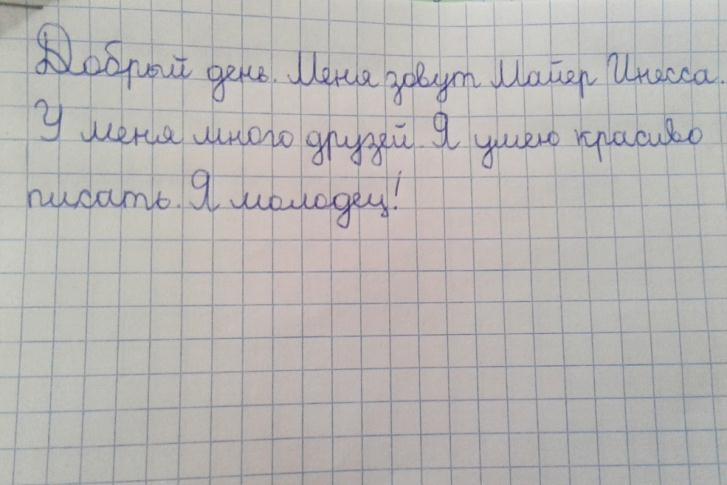 Добрый день. Меня зовут Майер Инесса.
У меня много друзей. Я умею красиво
писать. Я молодец!